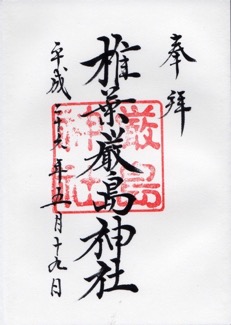 奉拝
椎葉厳島神社
厳島神社
平成二十九年五月十九日